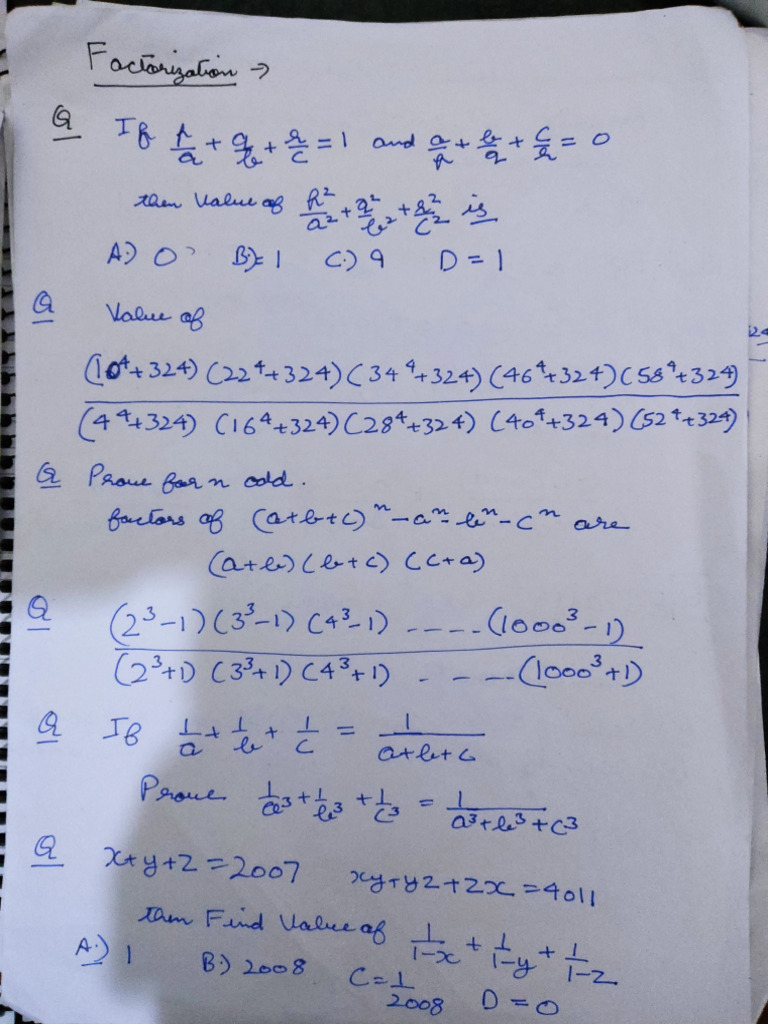 Factorization →
Q If p/a + q/b + r/c = 1 and a/p + b/q + c/r = 0
then Value of p²/a² + q²/b² + r²/c² is
A.) 0 B.)= 1 C.) 9 D = 1
Q Value of
(10⁴+324) (22⁴+324) (34⁴+324) (46⁴+324) (58⁴+324)
(4⁴+324) (16⁴+324) (28⁴+324) (40⁴+324) (52⁴+324)
Q Prove for n odd.
factors of (a+b+c)ⁿ-aⁿ-bⁿ-cⁿ are
(a+b) (b+c) (c+a)
Q (2³-1) (3³-1) (4³-1) ----- (1000³-1)
(2³+1) (3³+1) (4³+1) - - --- (1000³+1)
Q If 1/a + 1/b + 1/c = 1/(a+b+c)
Prove 1/a³ + 1/b³ + 1/c³ = 1/(a³+b³+c³)
Q x+y+z = 2007 xy+yz+zx = 4011
then Find Value of 1/(1-x) + 1/(1-y) + 1/(1-z)
A.) 1 B.) 2008 C = 1/2008 D = 0